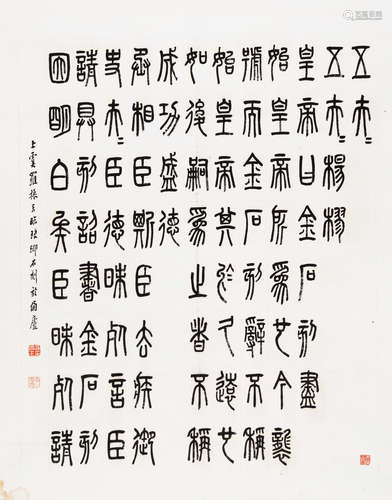 五夫=
五夫=楊樛
皇帝曰金石刻盡
始皇帝所為也今襲
號而金石刻辭不稱
始皇帝其於久遠也
如後嗣為之者不稱
成功盛德
丞相臣斯臣去疾御
史夫=臣德昧死言臣
請具刻詔書金石刻
因明白矣臣昧死請
上虞羅振玉臨琅邪石刻於廬